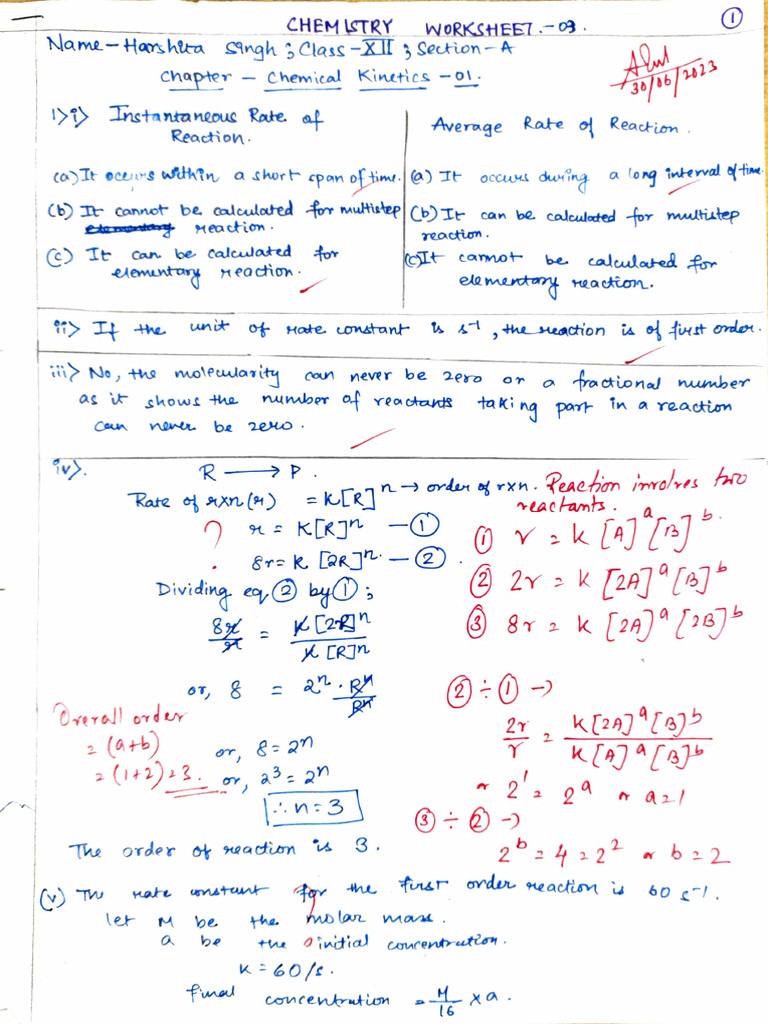 CHEMISTRY WORKSHEET.-03. ①
Name-Harshita Singh; Class-XII; Section-A
Chapter - Chemical Kinetics -01.
30/06/2023
1>i> Instantaneous Rate of
Reaction.
(a) It occurs within a short span of time.
(b) It cannot be calculated for multistep
elementary reaction.
(c) It can be calculated for
elementary reaction.
Average Rate of Reaction.
(a) It occurs during a long interval of time.
(b) It can be calculated for multistep
reaction.
(c) It cannot be calculated for
elementary reaction.
ii> If the unit of rate constant is s⁻¹, the reaction is of first order.
iii> No, the molecularity can never be zero or a fractional number
as it shows the number of reactants taking part in a reaction
can never be zero.
iv>. R ⟶ P.
Rate of rxn (r) = K[R]ⁿ → order of rxn.
? r = K[R]ⁿ — ①
8r = K [2R]ⁿ. — ②.
Dividing eq ② by ①;
8r/r = K[2R]ⁿ/K[R]ⁿ
or, 8 = 2ⁿ · Rⁿ/Rⁿ
or, 8 = 2ⁿ
or, 2³ = 2ⁿ
∴ n = 3
The order of reaction is 3.
Overall order
= (a+b)
= (1+2) = 3.
Reaction involves two
reactants.
① r = k [A]ᵃ [B]ᵇ
② 2r = k [2A]ᵃ [B]ᵇ
③ 8r = k [2A]ᵃ [2B]ᵇ
② ÷ ① →
2r/r = k[2A]ᵃ[B]ᵇ/k[A]ᵃ[B]ᵇ
or 2¹ = 2ᵃ or a=1
③ ÷ ② →
2ᵇ = 4 = 2² or b = 2
(v) The rate constant for the first order reaction is 60 s⁻¹.
let M be the molar mass.
a be the initial concentration.
K = 60/s.
final concentration = M/16 × a.
?